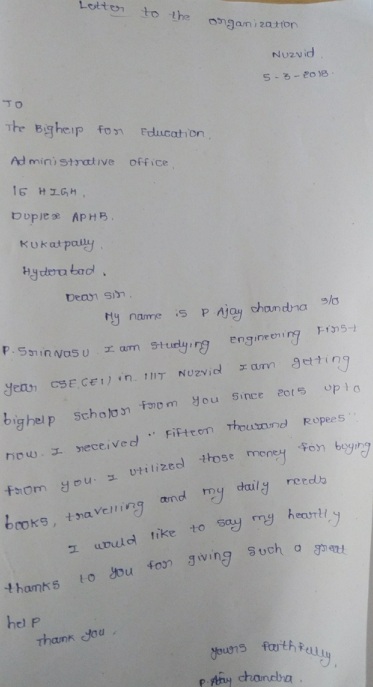 Letter to the organization
Nuzvid
5-3-2018.
TO
The Bighelp for Education,
Administrative office,
16 HIGH,
Duplex APHB,
Kukatpally,
Hyderabad,
Dear sir,
My name is P Ajay chandra s/o
P. Srinivasu I am studying engineering First
year CSE(E1) in IIIT Nuzvid I am getting
bighelp scholar from you since 2015 upto
now. I received "Fifteen Thousand Rupees"
from you. I utilized those money for buying
books, travelling and my daily needs
I would like to say my heartly
thanks to you for giving such a great
help
Thank you.
yours faithfully,
P. Ajay chandra.